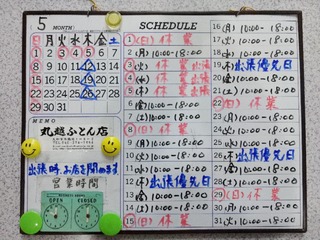 5 MONTH
日 月 火 水 木 金 土
1 2 3 4 5 6 7
8 9 10 11 12 13 14
15 16 17 18 19 20 21
22 23 24 25 26 27 28
29 30 31
MEMO
丸越ふとん店
出張時、お店を閉めます
営業時間
OPEN
CLOSED
SCHEDULE
1 (日) 休業
2 (月) 10:00-18:00
3 休業 出張
4 休業 出張
5 休業 出張
6 (金) 10:00-18:00
7 (土) 10:00-18:00
8 (日) 休業
9 (月) 10:00-18:00
10 (火) 10:00-18:00
11 (水) 10:00-18:00
12 (木) 出張優先日
13 (金) 10:00-18:00
14 (土) 10:00-18:00
15 (日) 休業
16 (月) 10:00-18:00
17 (火) 10:00-18:00
18 (水) 10:00-18:00
19 (木) 出張優先日
20 (金) 10:00-18:00
21 (土) 10:00-18:00
22 (日) 休業
23 (月) 10:00-18:00
24 (火) 10:00-18:00
25 (水) 10:00-18:00
26 (木) 出張優先日
27 (金) 10:00-18:00
28 (土) 10:00-18:00
29 (日) 休業
30 (月) 10:00-18:00
31 (火) 10:00-18:00